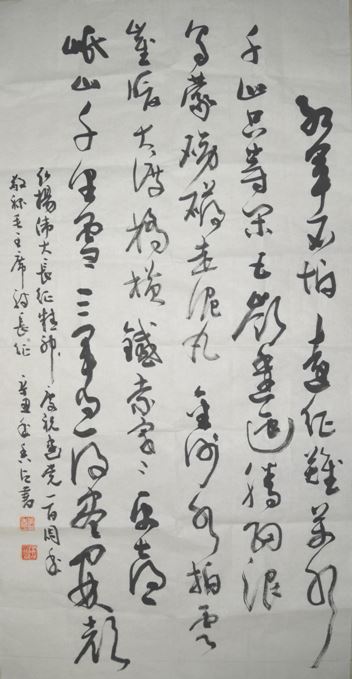 红军不怕遠征難万水
千山只等闲五岭逶迤腾细浪
乌蒙磅礴走泥丸金沙水拍云
崖暖大渡橋横鐵索寒更喜
岷山千里雪三军过后尽开颜
弘揚伟大长征精神庆祝建党一百周年
敬录毛主席诗长征 辛丑年書